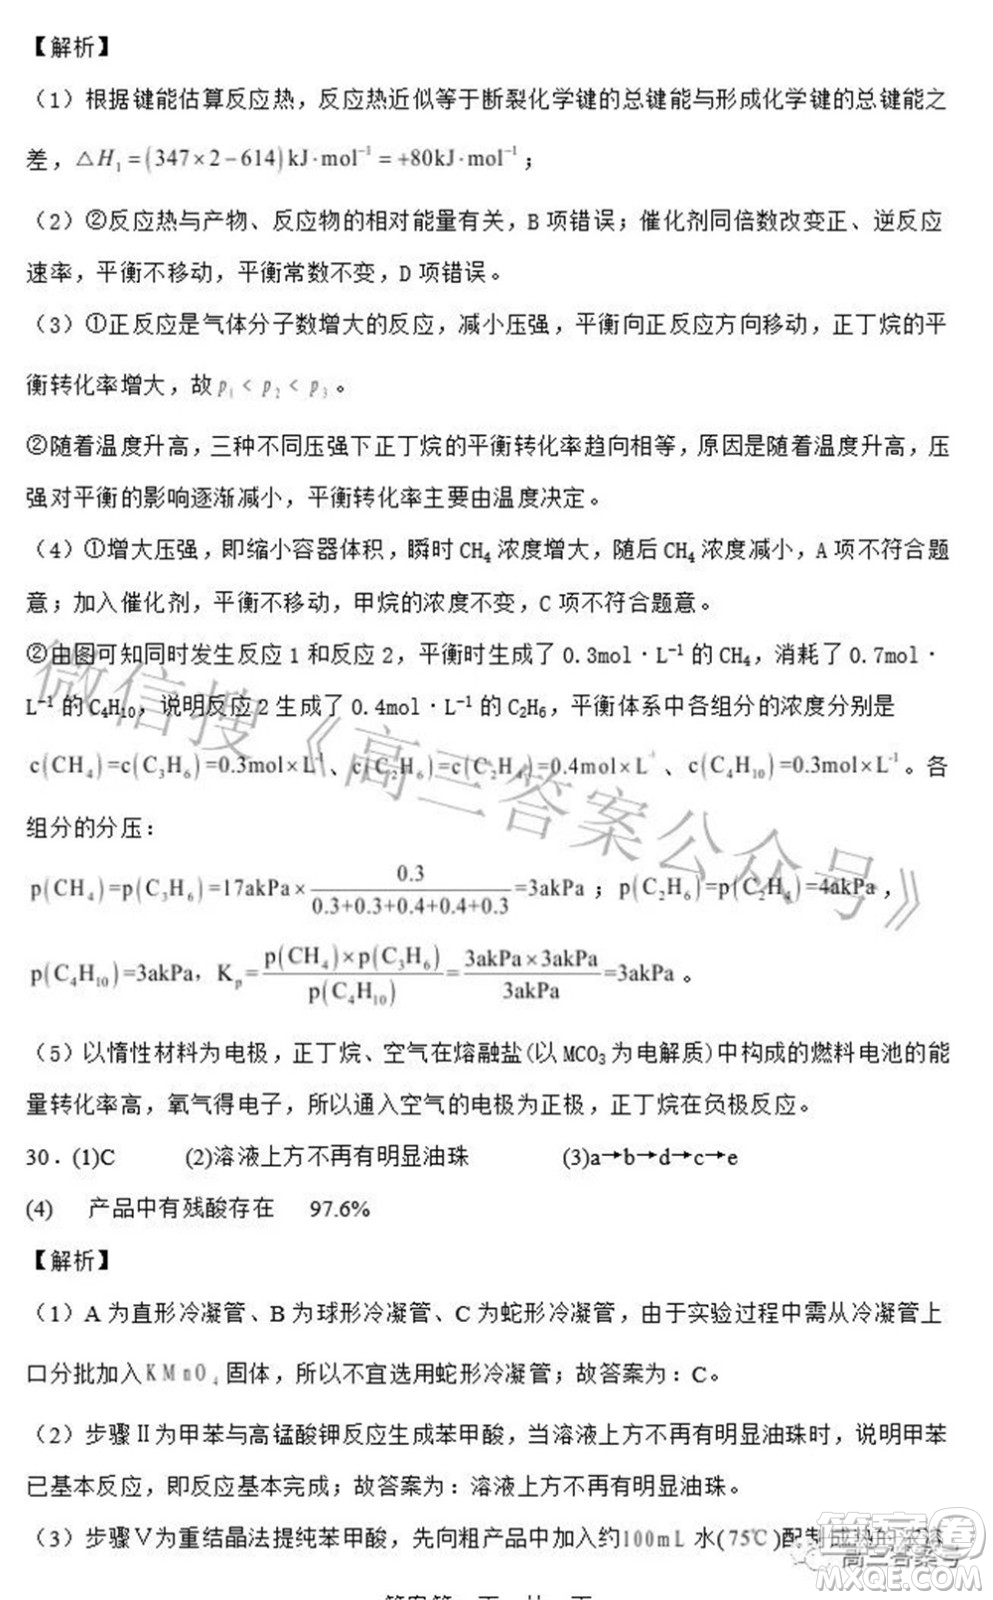 【解析】
（1）根据键能估算反应热，反应热近似等于断裂化学键的总键能与形成化学键的总键能之
差，△H₁=(347×2−614)kJ·mol⁻¹=+80kJ·mol⁻¹；
（2）②反应热与产物、反应物的相对能量有关，B 项错误；催化剂同倍数改变正、逆反应
速率，平衡不移动，平衡常数不变，D 项错误。
（3）①正反应是气体分子数增大的反应，减小压强，平衡向正反应方向移动，正丁烷的平
衡转化率增大，故 p₁ < p₂ < p₃。
②随着温度升高，三种不同压强下正丁烷的平衡转化率趋向相等，原因是随着温度升高，压
强对平衡的影响逐渐减小，平衡转化率主要由温度决定。
（4）①增大压强，即缩小容器体积，瞬时 CH₄ 浓度增大，随后 CH₄ 浓度减小，A 项不符合题
意；加入催化剂，平衡不移动，甲烷的浓度不变，C 项不符合题意。
②由图可知同时发生反应 1 和反应 2，平衡时生成了 0.3mol·L⁻¹ 的 CH₄，消耗了 0.7mol·
L⁻¹ 的 C₄H₁₀，说明反应 2 生成了 0.4mol·L⁻¹ 的 C₂H₆，平衡体系中各组分的浓度分别是
c(CH₄)=c(C₃H₆)=0.3mol×L⁻¹、c(C₂H₆)=c(C₂H₄)=0.4mol×L⁻¹、c(C₄H₁₀)=0.3mol×L⁻¹。各
组分的分压：
p(CH₄)=p(C₃H₆)=17akPa×0.3/(0.3+0.3+0.4+0.4+0.3)=3akPa；p(C₂H₆)=p(C₂H₄)=4akPa，
p(C₄H₁₀)=3akPa，Kₚ=p(CH₄)×p(C₃H₆)/p(C₄H₁₀)=3akPa×3akPa/3akPa=3akPa。
（5）以惰性材料为电极，正丁烷、空气在熔融盐(以 MCO₃ 为电解质)中构成的燃料电池的能
量转化率高，氧气得电子，所以通入空气的电极为正极，正丁烷在负极反应。
30．(1)C (2)溶液上方不再有明显油珠 (3)a→b→d→c→e
(4) 产品中有残酸存在 97.6%
【解析】
（1）A 为直形冷凝管、B 为球形冷凝管、C 为蛇形冷凝管，由于实验过程中需从冷凝管上
口分批加入 KMnO₄ 固体，所以不宜选用蛇形冷凝管；故答案为：C。
（2）步骤Ⅱ为甲苯与高锰酸钾反应生成苯甲酸，当溶液上方不再有明显油珠时，说明甲苯
已基本反应，即反应基本完成；故答案为：溶液上方不再有明显油珠。
（3）步骤Ⅴ为重结晶法提纯苯甲酸，先向粗产品中加入约100mL 水(75℃)配制成热的浓溶
微信搜《高三答案公众号》
高三答案号
答案圈
MXQE.COM